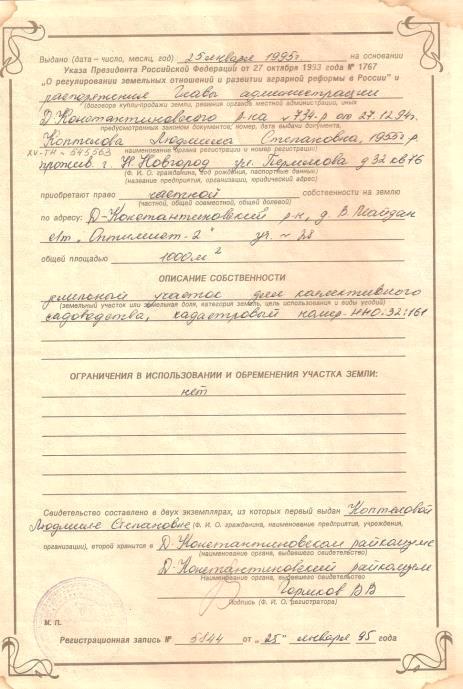 Выдано (дата – число, месяц, год) 25 января 1995 г. на основании
Указа Президента Российской Федерации от 27 октября 1993 года № 1767
„О регулировании земельных отношений и развитии аграрной реформы в России" и
распоряжение Главы администрации
(договора купли-продажи земли, решения органов местной администрации, иных
Д-Константиновского р-на № 734-р от 27.12.94г.
предусмотренных законом документов; номер, дата выдачи документа,
Коптелова Людмила Степановна, 1955 г.р
XV-ТН № 545563 наименования органа регистрации и номер регистрации)
прожив. г. Н Новгород ул. Пермякова д 32 кв 76
(Ф. И. О. гражданина, год рождения, паспортные данные)
(название предприятия, организации, юридический адрес)
приобретают право частной собственности на землю
(частной, общей совместной, общей долевой)
по адресу: Д-Константиновский р-н, д. В. Майдан
с/т „Оптимист-2" уч. № 28
общей площадью 1000 м²
ОПИСАНИЕ СОБСТВЕННОСТИ
земельный участок для коллективного
(земельный участок или земельная доля, категория земель, цель использования и виды угодий)
садоводства, кадастровый номер-ННО:32:161
ОГРАНИЧЕНИЯ В ИСПОЛЬЗОВАНИИ И ОБРЕМЕНЕНИЯ УЧАСТКА ЗЕМЛИ:
нет
Свидетельство составлено в двух экземплярах, из которых первый выдан Коптеловой
Людмиле Степановне (Ф. И. О. гражданина, наименование предприятия, учреждения,
организации), второй хранится в Д-Константиновском райкомземе
(наименование органа, выдавшего свидетельство)
Д-Константиновский райкомзем
Наименование органа, выдавшего свидетельство
В В
Подпись (Ф. И. О. регистратора)
М. П.
Регистрационная запись № 5844 от „25" января 95 года